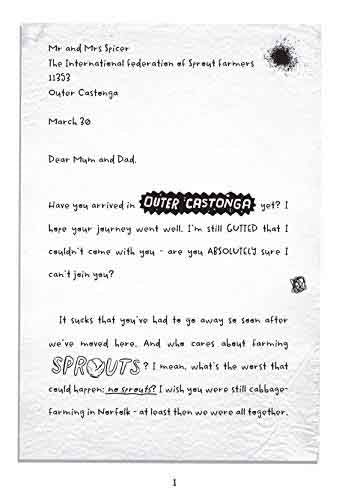 Mr and Mrs Spicer
The International federation of Sprout farmers
11353
Outer Castonga
March 30
Dear Mum and Dad,
Have you arrived in OUTER CASTONGA yet? I
hope your journey went well. I'm still GUTTED that I
couldn't come with you - are you ABSOLUTELY sure I
can't join you?
It sucks that you've had to go away so soon after
we've moved here. And who cares about farming
SPROUTS? I mean, what's the worst that
could happen: no sprouts? I wish you were still cabbage-
farming in Norfolk - at least then we were all together.
1